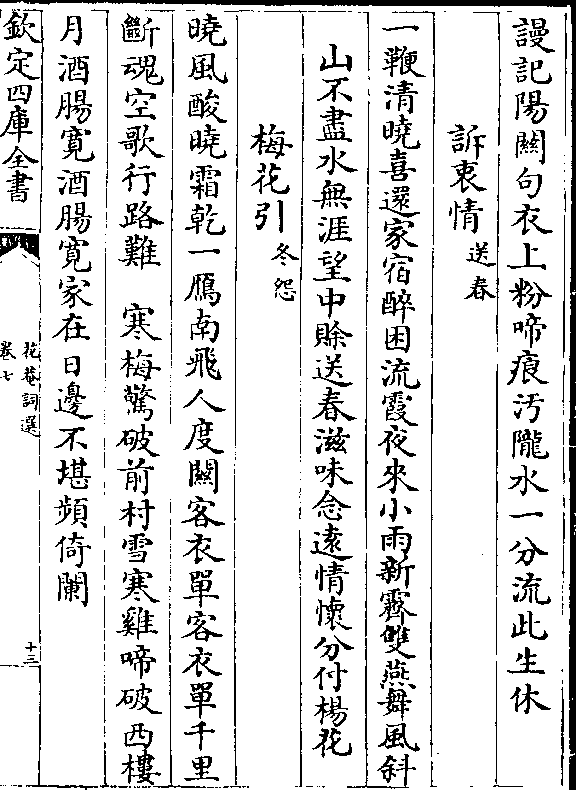 謾記陽闗句衣上粉啼痕汚隴水一分流此生休
訴衷情送春
一鞭清曉喜還家宿醉困流霞夜來小雨新霽雙燕舞風斜
山不盡水無涯望中賖送春滋味念逺情懷分付楊花
梅花引冬怨
曉風酸曉霜乾一鴈南飛人度闗客衣單客衣單千里
斷魂空歌行路難　寒梅驚破前村雪寒雞啼破西樓
月酒腸寛酒腸寛家在日邊不堪頻倚闌
欽定四庫全書
花菴詞選
卷七
十三